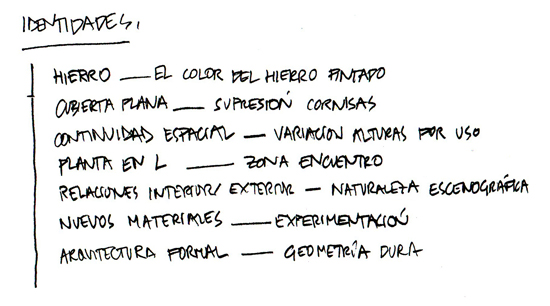 IDENTIDADES,
HIERRO — EL COLOR DEL HIERRO PINTADO
CUBIERTA PLANA — SUPRESIÓN CORNISAS
CONTINUIDAD ESPACIAL — VARIACION ALTURAS POR USO
PLANTA EN L — ZONA ENCUENTRO
RELACIONES INTERIOR/EXTERIOR — NATURALEZA ESCENOGRÁFICA
NUEVOS MATERIALES — EXPERIMENTACIÓN
ARQUITECTURA FORMAL — GEOMETRÍA DURA